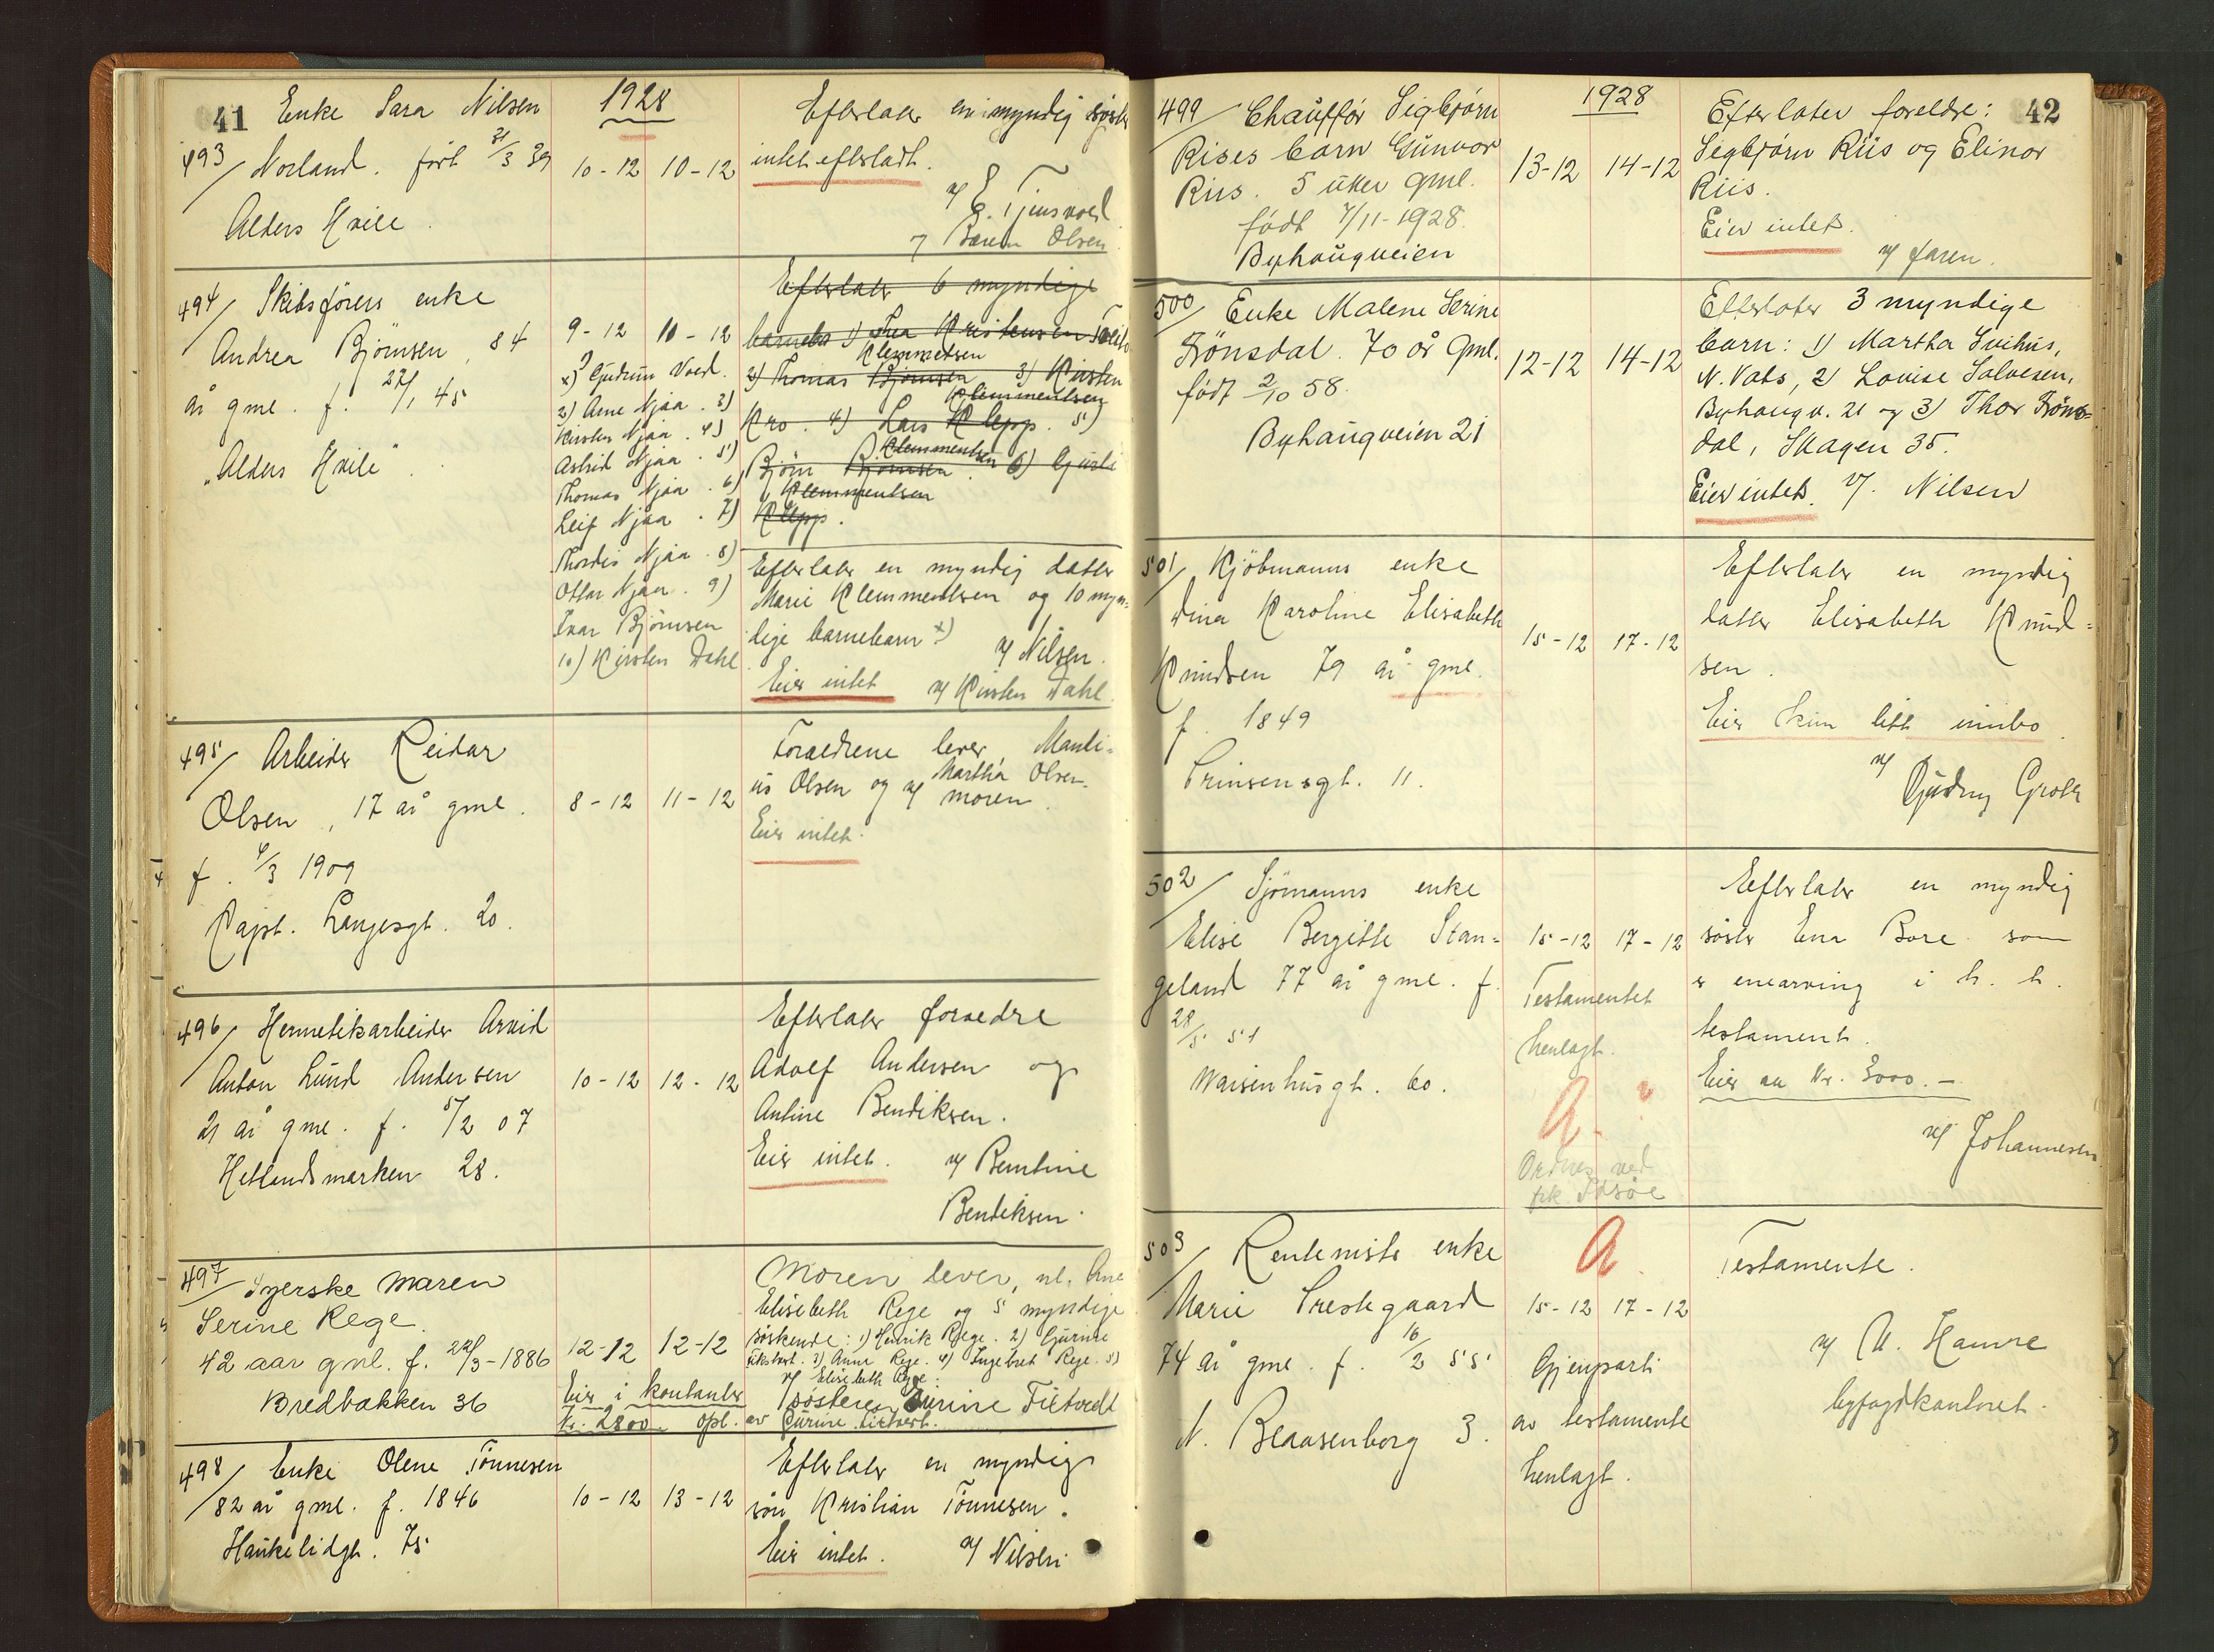 41
1928
493/ Enke Sara Nilsen
Norland. født 21/3 39
Alders Hvile.
10-12 10-12
Efterlater en myndig søster
intet efterladt.
v/ E. Tjensvold
Olsen
494/ Skibsförers enke
Andrea Björnsen, 84
år gml. f. 27/1 45
„Alders Hvile".
9-12 10-12
x) 1) Gudrun Voed.
2) Arne Njaa. 3)
Kirsten Njaa. 4)
Astrid Njaa. 5)
Thomas Njaa. 6)
Leif Njaa. 7)
Thordis Njaa. 8)
Ottar Njaa. 9)
Ivar Björnsen
10) Kirsten Dahl
Efterlater 6 myndige
barnebarn 1) Thea Kristensen
Klemmetsen
2) Thomas Björnsen 3) Kirsten
Klemmentsen
Kro. 4) Lars Klepp. 5)
Klemmentsen
Björn Björnsen 6)
Klemmentsen
Klepp.
Efterlater en myndig datter
Marie Klemmentsen og 10 myn-
dige barnebarn x)
v/ Nilsen.
Eier intet v/ Kirsten Dahl.
495/ Arbeider Reidar
Olsen, 17 år gml.
f. 4/3 1909
Kapt. Langesgt. 20.
8-12 11-12
Foreldrene lever, Mauli-
Martha Olsen.
us Olsen og v/ moren.
Eier intet.
496/ Hermetikarbeider Arvid
Anton Lund Andersen
21 år gml. f. 5/2 07
Hetlandsmarken 28.
10-12 12-12
Efterlater foreldre
Adolf Andersen og
Antine Bendiksen.
Eier intet. v/ Bentine
Bendiksen.
497/ Syerske Maren
Serine Rege.
42 aar gml. f. 22/3-1886
Bredbakken 36
12-12 12-12
Moren lever, nl. Ane
Elisabeth Rege og 5 myndige
søskende: 1) Henrik Rege. 2) Gurine
3) Anna Rege. 4) Ingebret Rege. 5)
Elisabeth Rege.
v/ søsteren Gurine Tietvedt
Eier i kontanter
Kr. 2800. opl. av Gurine Tietvedt.
498/ Enke Olene Tönnesen
82 år gml. f. 1846
Haukelidgt. 75
10-12 13-12
Efterlater en myndig
sön Kristian Tönnesen.
Eier intet. v/ Nilsen
42
1928
499/ Chauffør Sigbjørn
Riises barn Gunvor
Riis. 5 uker gml.
født 7/11-1928.
Byhaugveien
13-12 14-12
Efterlater foreldre:
Sigbjørn Riis og Elinor
Riis.
Eier intet.
v/ faren.
500/ Enke Malene Serine
Frönsdal. 70 år gml.
født 2/10 58.
Byhaugveien 21
12-12 14-12
Efterlater 3 myndige
barn: 1) Martha Svihus,
N. Vats, 2) Lovise Salvesen,
Byhaugv. 21 og 3) Thor Fröns-
dal, Skagen 35.
Eier intet. v/. Nilsen
501/ Kjöbmanns enke
Dina Karoline Elisabeth
Knudsen 79 år gml.
f. 1849
Prinsensgt. 11.
15-12 17-12
Efterlater en myndig
datter Elisabeth Knud-
sen.
Eier kun litt innbo.
v/ Gudny Grote
502/ Sjömanns enke
Elise Bergitte Stan-
geland 77 år gml. f.
28/5 51
Waisenhusgt. 60.
15-12 17-12
Testamentet
henlagt.
a. ?
Ordnes ved
frk Idsöe
Efterlater en myndig
søster Ena Bore som
er enearving i h. h.
testament.
Eier ca Kr. 3000.-
v/ Johannesen
503/ Rentenists enke
Marie Prestegaard
74 år gml. f. 16/2 55
N. Blaasenborg 3.
a.
15-12 17-12
Gjenpart
av testamente
henlagt.
Testamente.
v/ A. Hamre
byfogdkontoret.